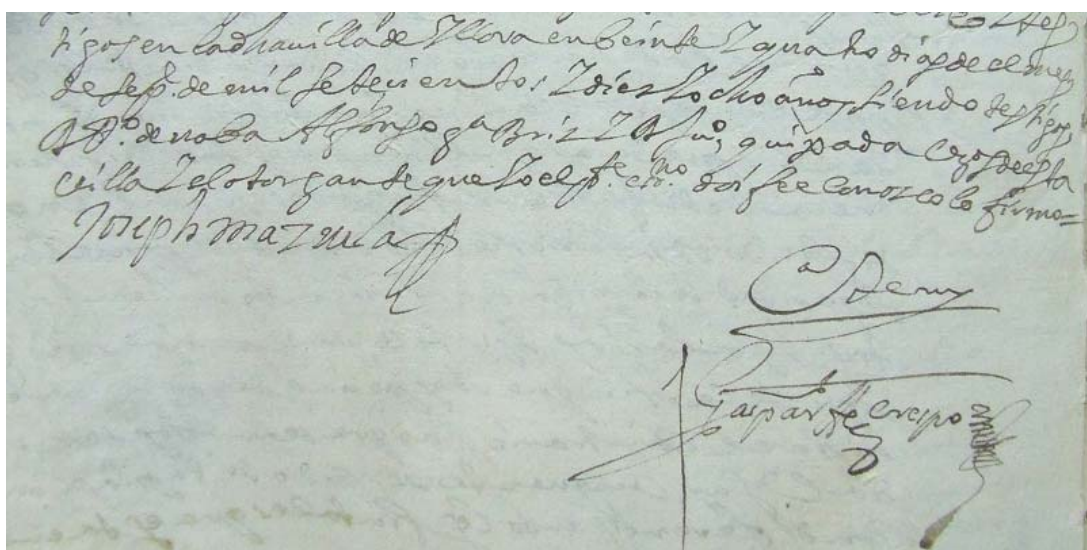 tigos en la dha villa de Yllora en beinte y quatro dias de el mes
de sep.e de mil seteçientos y diez y ocho años siendo testigos
de noba Alfonso ga Briz y Ju.o quixada vezos de esta
villa y el otorgante que yo el pte. etno. doi fee conozco lo firmo=
Joseph mazuela
Ante my
Gaspar Crespo